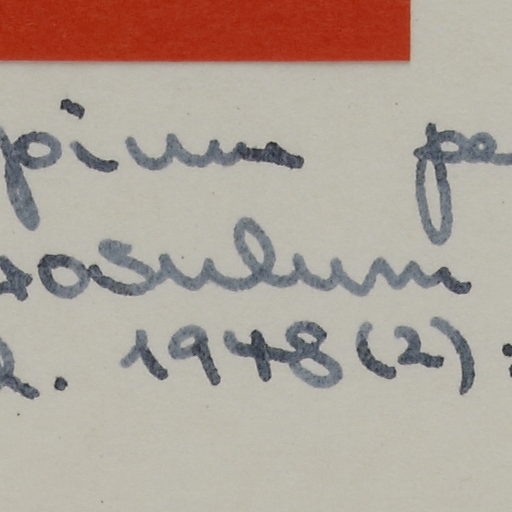 pium pe
rosulum
h. 1948(2):